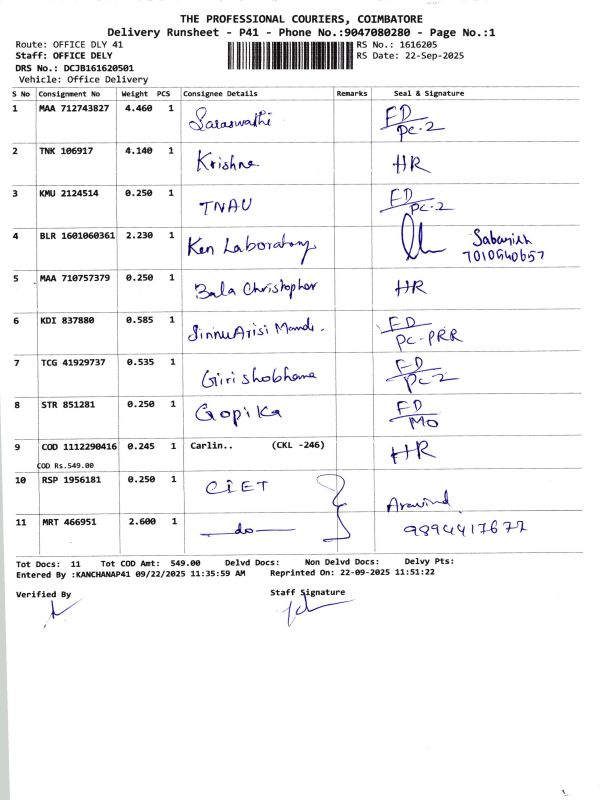 THE PROFESSIONAL COURIERS, COIMBATORE
Delivery Runsheet - P41 - Phone No.:9047080280 - Page No.:1
Route: OFFICE DLY 41
RS No.: 1616205
Staff: OFFICE DELY
RS Date: 22-Sep-2025
DRS No.: DCJB161620501
Vehicle: Office Delivery
S No Consignment No Weight PCS Consignee Details Remarks Seal & Signature
1 MAA 712743827 4.460 1 Saraswathi FD
PC-2
2 TNK 106917 4.140 1 Krishna HR
3 KMU 2124514 0.250 1 TNAU FD
PC-2
4 BLR 1601060361 2.230 1 Ken Laboratory
7010540657
5 MAA 710757379 0.250 1 Bala Christopher HR
6 KDI 837880 0.585 1 Arisi FD
PC-PRR
7 TCG 41929737 0.535 1 Girishobhana FD
PC-2
8 STR 851281 0.250 1 Gopika FD
MO
9 COD 1112290416 0.245 1 Carlin.. (CKL -246) HR
COD Rs.549.00
10 RSP 1956181 0.250 1 CIET Aravind
11 MRT 466951 2.600 1 do 9894417677
Tot Docs: 11 Tot COD Amt: 549.00 Delvd Docs: Non Delvd Docs: Delvy Pts:
Entered By :KANCHANAP41 09/22/2025 11:35:59 AM Reprinted On: 22-09-2025 11:51:22
Verified By Staff Signature